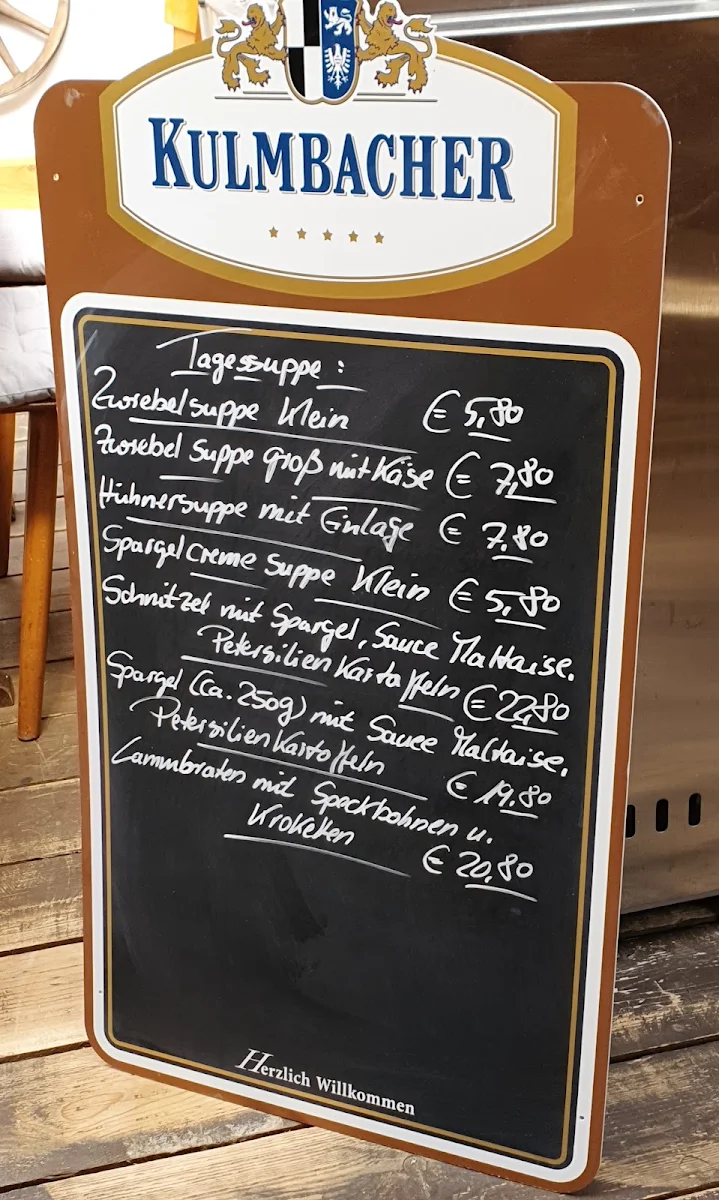 KULMBACHER
Tagessuppe:
Zwiebelsuppe Klein € 5,80
Zwiebel Suppe groß mit Käse € 7,80
Hühnersuppe mit Einlage € 7.80
Spargelcreme Suppe Klein € 5,80
Schnitzel mit Spargel, Sauce Maltaise.
Petersilien Kartoffeln € 22,80
Spargel (ca. 250g) mit Sauce Maltaise.
Petersilien Kartoffeln € 19.80
Lammbraten mit Speckbohnen u.
Kroketten € 20,80
Herzlich Willkommen